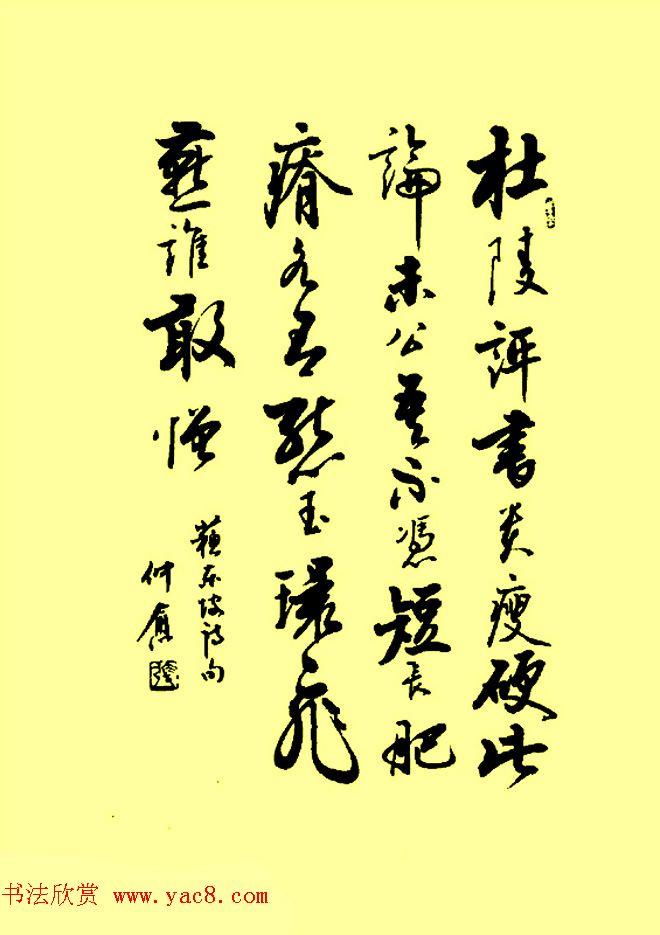 杜陵評書貴瘦硬此
論未公吾不憑短長肥
瘠各有態玉環飛
燕誰敢憎
蘇東坡詩句
仲愈
书法欣赏 www.yac8.com